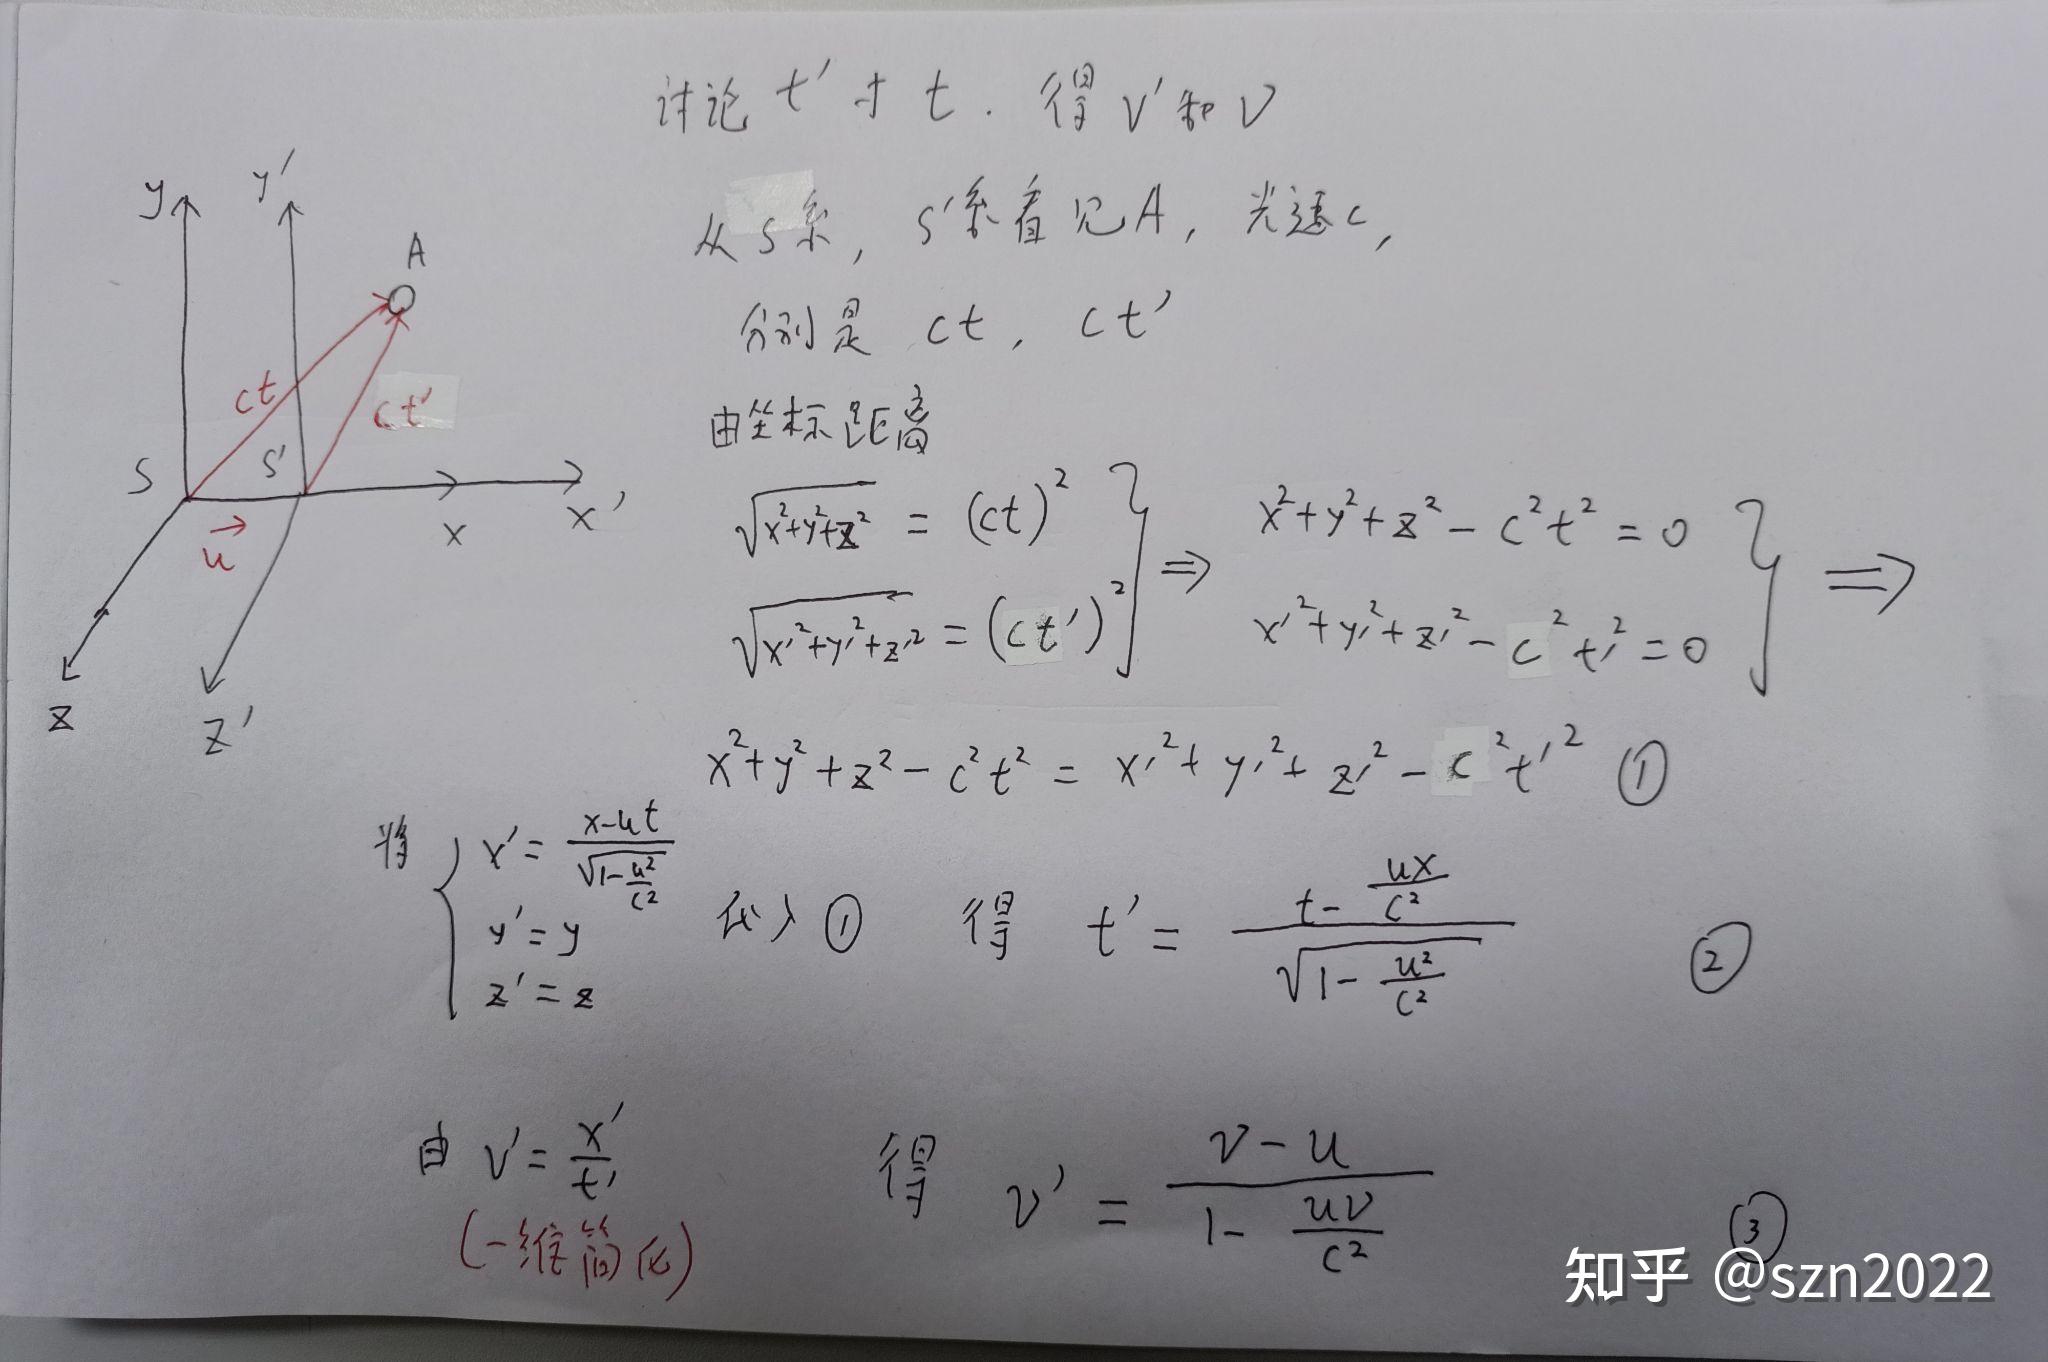 讨论 t′ 于 t. 得 v′ 和 v
从 S系, S′系看见A, 光速c,
分别是 ct, ct′
由坐标距离
√(x²+y²+z²) = (ct)²
√(x′²+y′²+z′²) = (ct′)²
} ⇒
x²+y²+z²-c²t²=0
x′²+y′²+z′²-c²t′²=0
} ⇒
x²+y²+z²-c²t² = x′²+y′²+z′²-c²t′² ①
将 { x′ = (x-ut)/√(1-u²/c²)
y′ = y
z′ = z
代入① 得 t′ = (t-ux/c²)/√(1-u²/c²) ②
由 v′ = x′/t′ 得 v′ = (v-u)/(1-uv/c²) ③
(一维简化)
y
y′
A
ct
ct′
S
S′
u
x
x′
z
z′
知乎 @szn2022